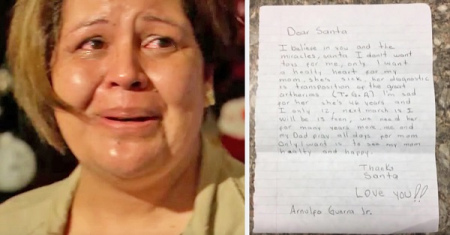 Dear Santa
I believe in you and the
miracles, santa I don't want
toys for me, only I want
a healty heart for my
mom, she's sick, her diagnostic
is transposition of the great
artheries (T.o.G.A) I'm sad
for her she's 46 years and
I only 12, next march 12 I
will be 13 teen, we need her
for many years more, me and
my Dad pray all days for mom
Only I want is to see my mom
healty and happy
Thanks
Santa
Love you!!
Arnulfo Guerra Jr.